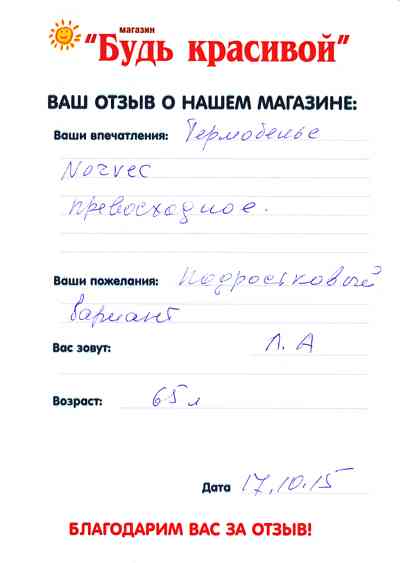 магазин
"Будь красивой"
ВАШ ОТЗЫВ О НАШЕМ МАГАЗИНЕ:
Ваши впечатления: Термобелье
Norvec
превосходное.
Ваши пожелания: Подростковый
вариант
Вас зовут: Л. А
Возраст: 65 л
Дата 17.10.15
БЛАГОДАРИМ ВАС ЗА ОТЗЫВ!